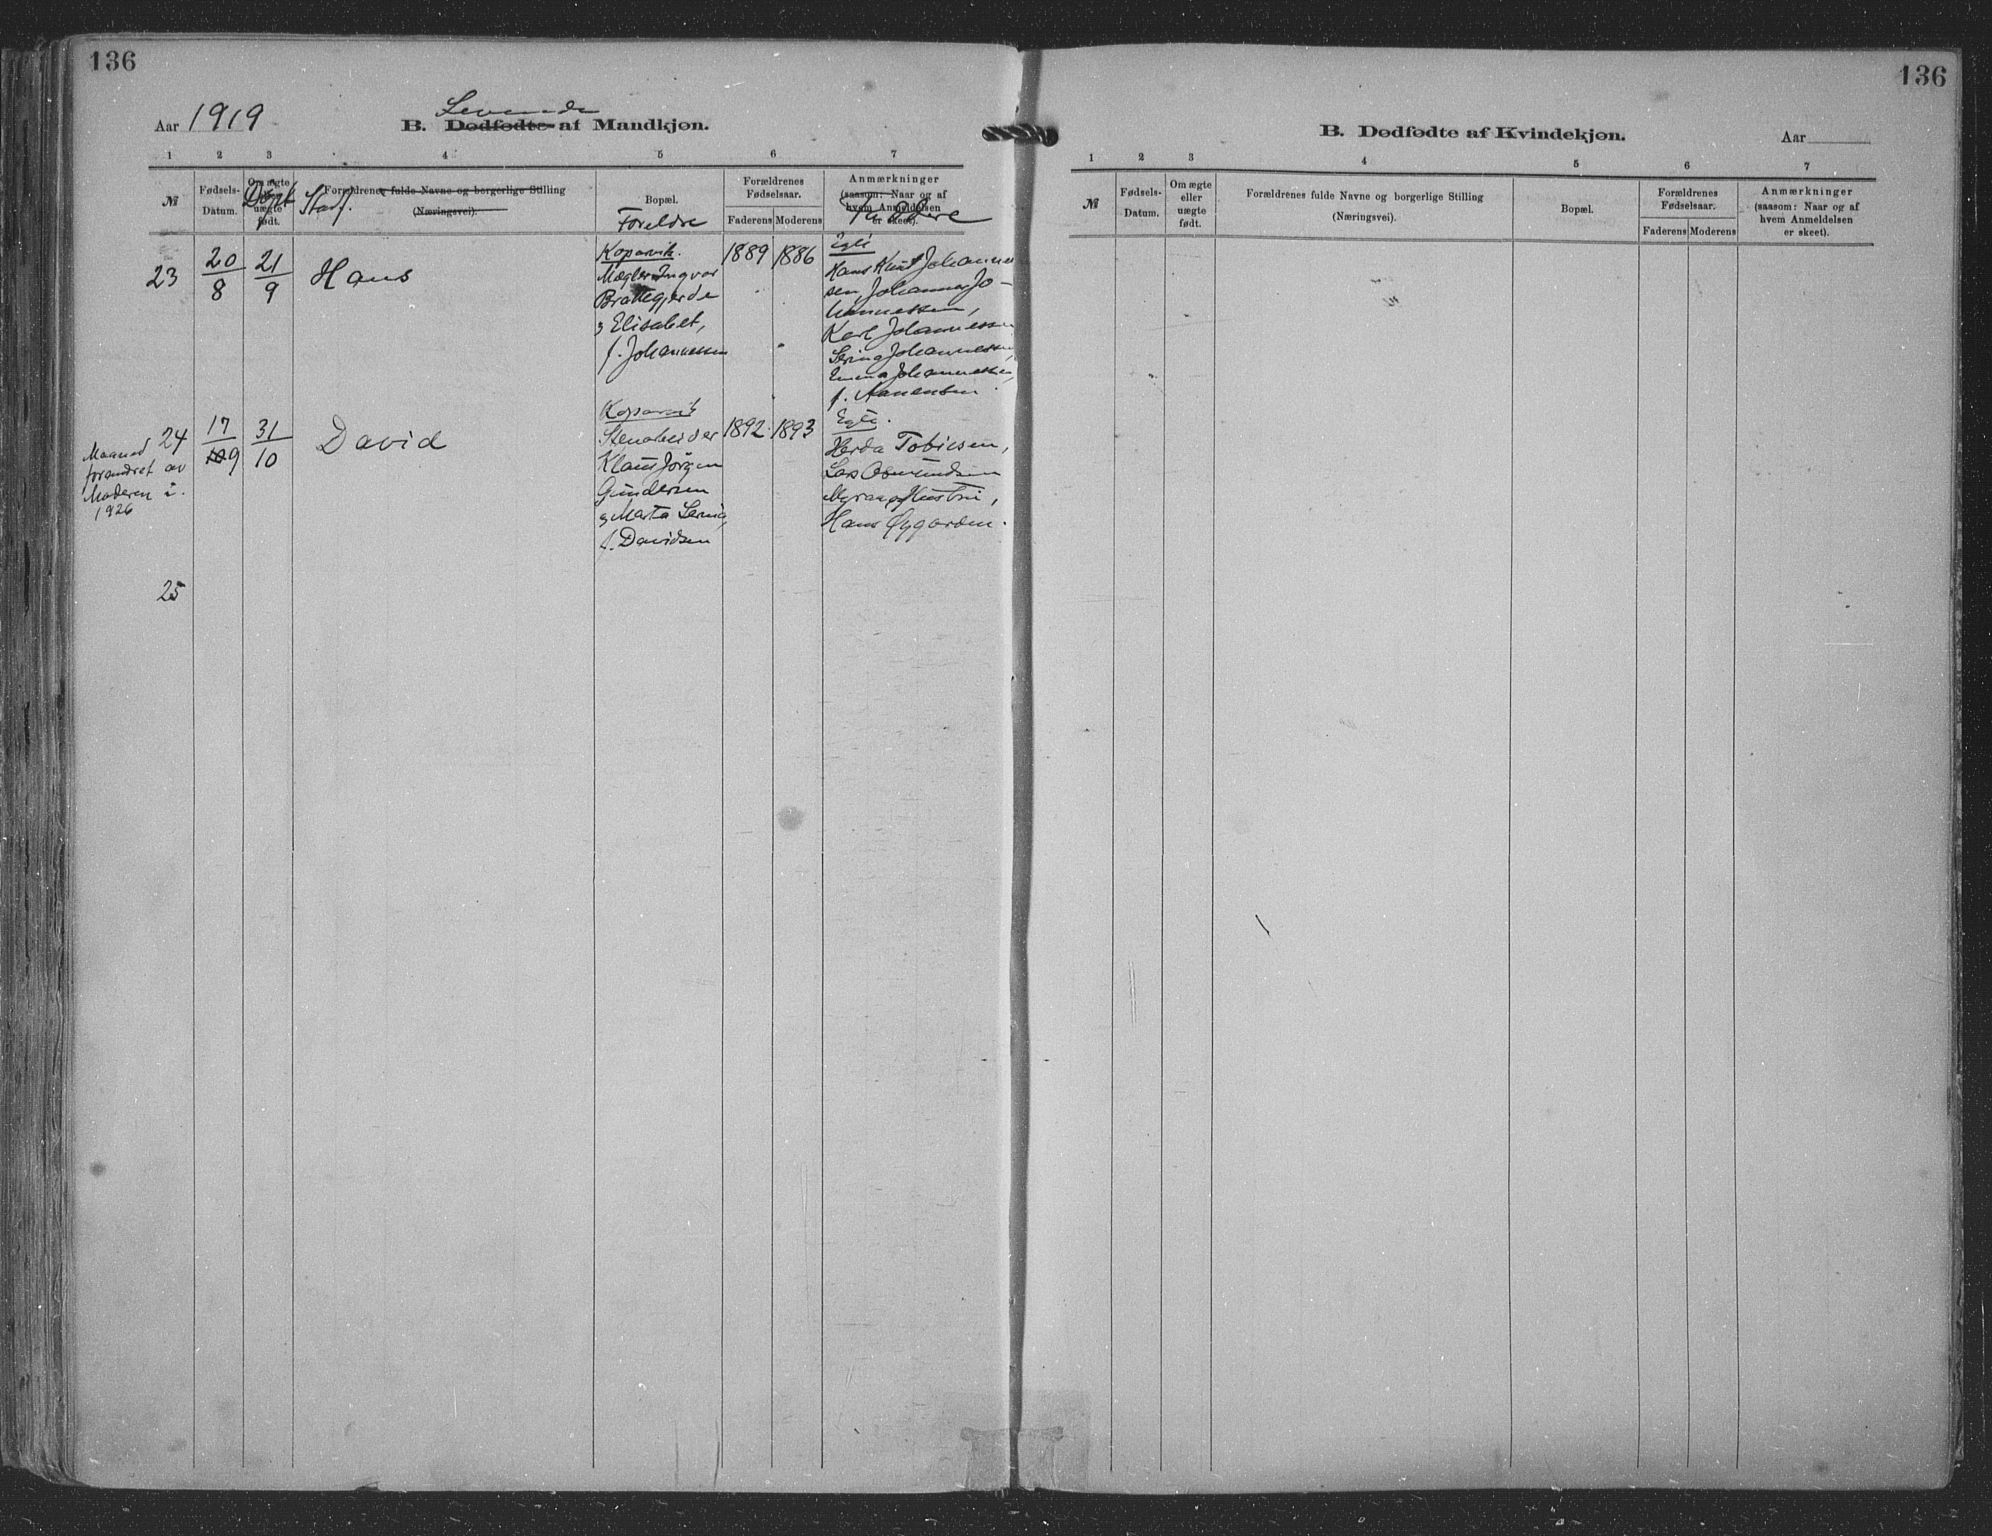 136
Levende
Aar 1919 B. Dødfødte af Mandkjøn.
1 2 3 4 5 6 7
№
Fødsels-
Datum.
Om ægte
uægte
født.
Døpt
Forældrenes fulde Navne og borgerlige Stilling
(Næringsvei).
Bopæl.
Foreldre
Forældrenes
Fødselsaar.
Faderens Moderens
Anmærkninger
(saasom: Naar og af
hvem Anmeldelsen
er skeet).
23
20/8
21/9
Hans
Kopervik.
Mægler Ingvar
Brattegjerde
Elisabet,
f. Johannessen
1889
1886
Egte
Hans Knut Johannes-
sen, Johannes Jo-
hannessen,
Karl Johannessen
Serina Johannessen,
Emma Johannessen,
f. Aanensen.
Maaned
forandret av
Moderen i
1926
24
17/10 9
31/10
David
Kopervik
Stenarbeider
Klaus Jörgen
Gundersen
Marta Serine,
f. Davidsen
1892
1893
Egte.
Herda Tobiesen,
Osmundsen
Hustru,
Hans Øygarden.
25
136
B. Dødfødte af Kvindekjøn.
Aar
1 2 3 4 5 6 7
№
Fødsels-
Datum.
Om ægte
eller
uægte
født.
Forældrenes fulde Navne og borgerlige Stilling
(Næringsvei).
Bopæl.
Forældrenes
Fødselsaar.
Faderens Moderens
Anmærkninger
(saasom: Naar og af
hvem Anmeldelsen
er skeet).